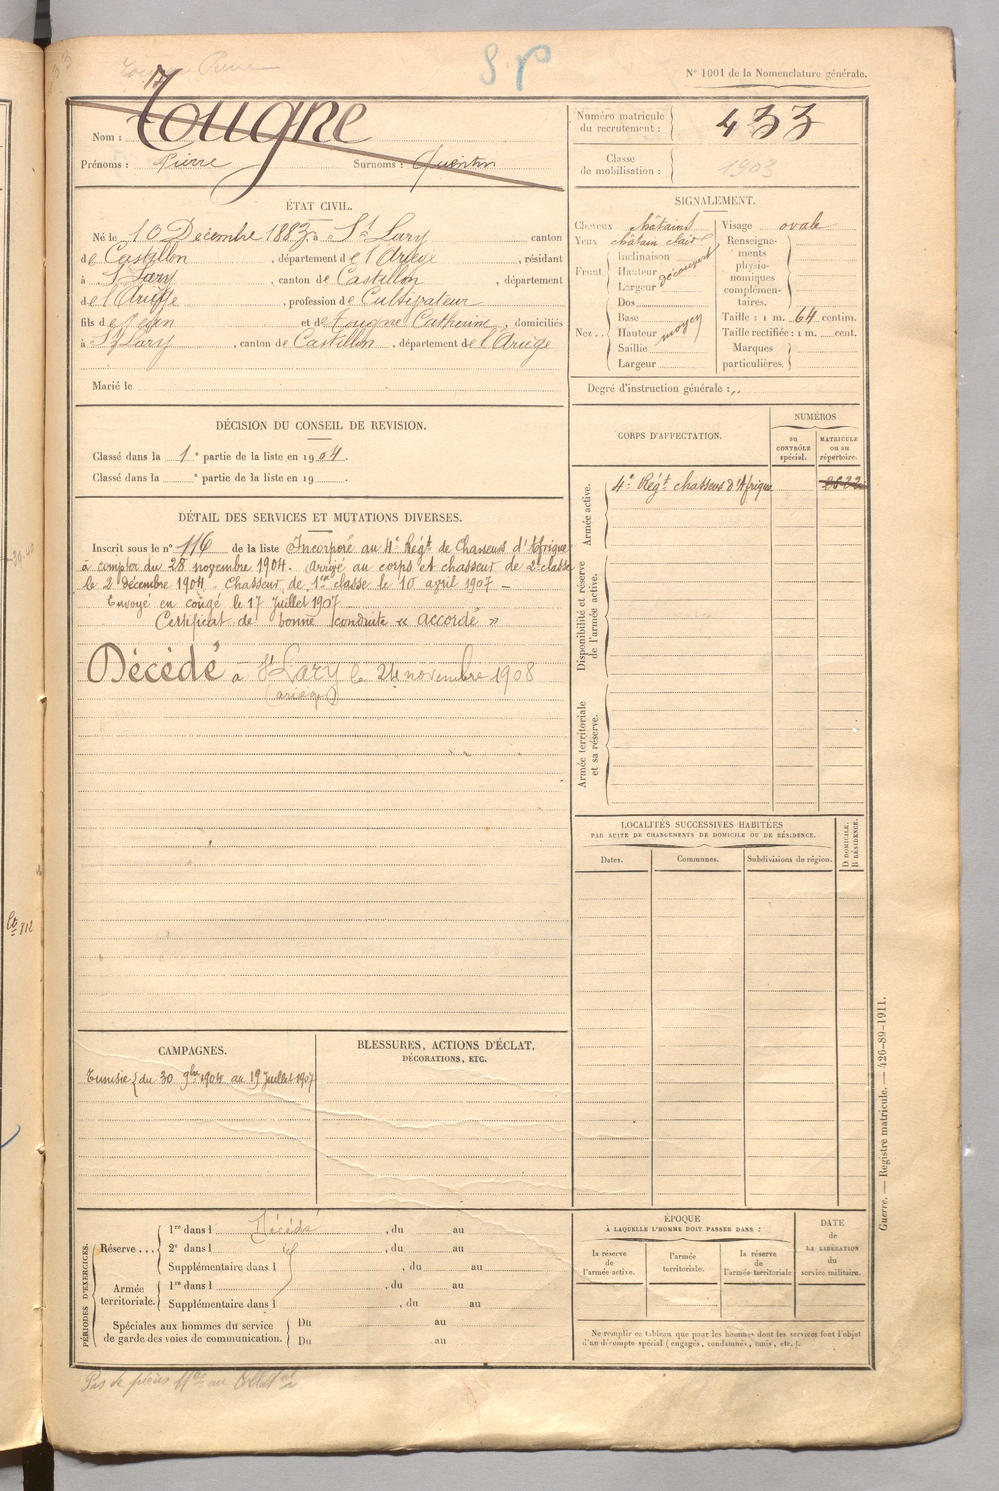 S. P
N° 1001 de la Nomenclature générale.
Nom : Tougne
Prénoms : Pierre Surnoms : Quentin
Numéro matricule du recrutement : 433
Classe de mobilisation : 1903
ÉTAT CIVIL.
Né le 10 Décembre 1883, à St Lary canton
de Castillon, département de l'Ariège, résidant
à St Lary, canton de Castillon, département
de l'Ariège, profession de Cultivateur
fils de Jean et de Tougne Catherine, domiciliés
à St Lary, canton de Castillon, département de l'Ariège
Marié le
SIGNALEMENT.
Cheveux châtains
Yeux châtain clair
Front Inclinaison
Hauteur découvert
Largeur
Nez Dos
Base
Hauteur moyen
Saillie
Largeur
Visage ovale
Renseignements physionomiques complémentaires.
Taille : 1 m. 64 centim.
Taille rectifiée : 1 m. cent.
Marques particulières.
Degré d'instruction générale : „
DÉCISION DU CONSEIL DE REVISION.
Classé dans la 1e partie de la liste en 1904.
Classé dans la e partie de la liste en 19 .
DÉTAIL DES SERVICES ET MUTATIONS DIVERSES.
Inscrit sous le n° 116 de la liste Incorporé au 4e Régt de Chasseurs d'Afrique
à compter du 28 novembre 1904. Arrivé au corps et chasseur de 2e classe
le 2 décembre 1904. Chasseur de 1re classe le 10 avril 1907 –
Envoyé en congé le 17 Juillet 1907
Certificat de bonne conduite « accordé »
Décédé à St Lary le 24 novembre 1908
(ariège)
CORPS D'AFFECTATION.
NUMÉROS
au CONTRÔLE spécial.
MATRICULE ou au répertoire.
Armée active.
4e Régt chasseurs d'Afrique
Disponibilité et réserve de l'armée active.
Armée territoriale et sa réserve.
LOCALITÉS SUCCESSIVES HABITÉES
PAR SUITE DE CHANGEMENTS DE DOMICILE OU DE RÉSIDENCE.
Dates. Communes. Subdivisions de région. D DOMICILE. R RÉSIDENCE.
CAMPAGNES.
Tunisie { du 30 9bre 1904 au 19 Juillet 1907
BLESSURES, ACTIONS D'ÉCLAT,
DÉCORATIONS, ETC.
PÉRIODES D'EXERCICES.
Réserve ... 1re dans l Décédé, du au
2e dans l , du au
Supplémentaire dans l , du au
Armée territoriale. 1re dans l , du au
Supplémentaire dans l , du au
Spéciales aux hommes du service de garde des voies de communication. Du au
Du au
ÉPOQUE
À LAQUELLE L'HOMME DOIT PASSER DANS :
la réserve de l'armée active. l'armée territoriale. la réserve de l'armée territoriale
DATE de LA LIBÉRATION du service militaire.
Ne remplir ce tableau que pour les hommes dont les services font l'objet
d'un décompte spécial (engagés, condamnés, omis, etc.).
Guerre. — Registre matricule. — 426-89-1911.
Pas de pièces